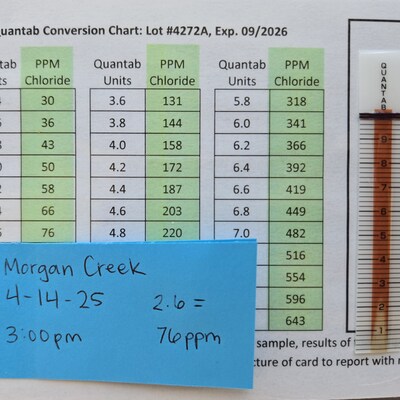 Quantab Conversion Chart: Lot #4272A, Exp. 09/2026
PPM Quantab PPM Quantab PPM
Chloride Units Chloride Units Chloride
30 3.6 131 5.8 318
36 3.8 144 6.0 341
43 4.0 158 6.2 366
50 4.2 172 6.4 392
58 4.4 187 6.6 419
66 4.6 203 6.8 449
76 4.8 220 7.0 482
516
554
596
643
sample, results of
cture of card to report with
Morgan Creek
4-14-25 2.6 =
3:00pm 76ppm
QUANTAB
9
8
7
6
5
4
3
2
1